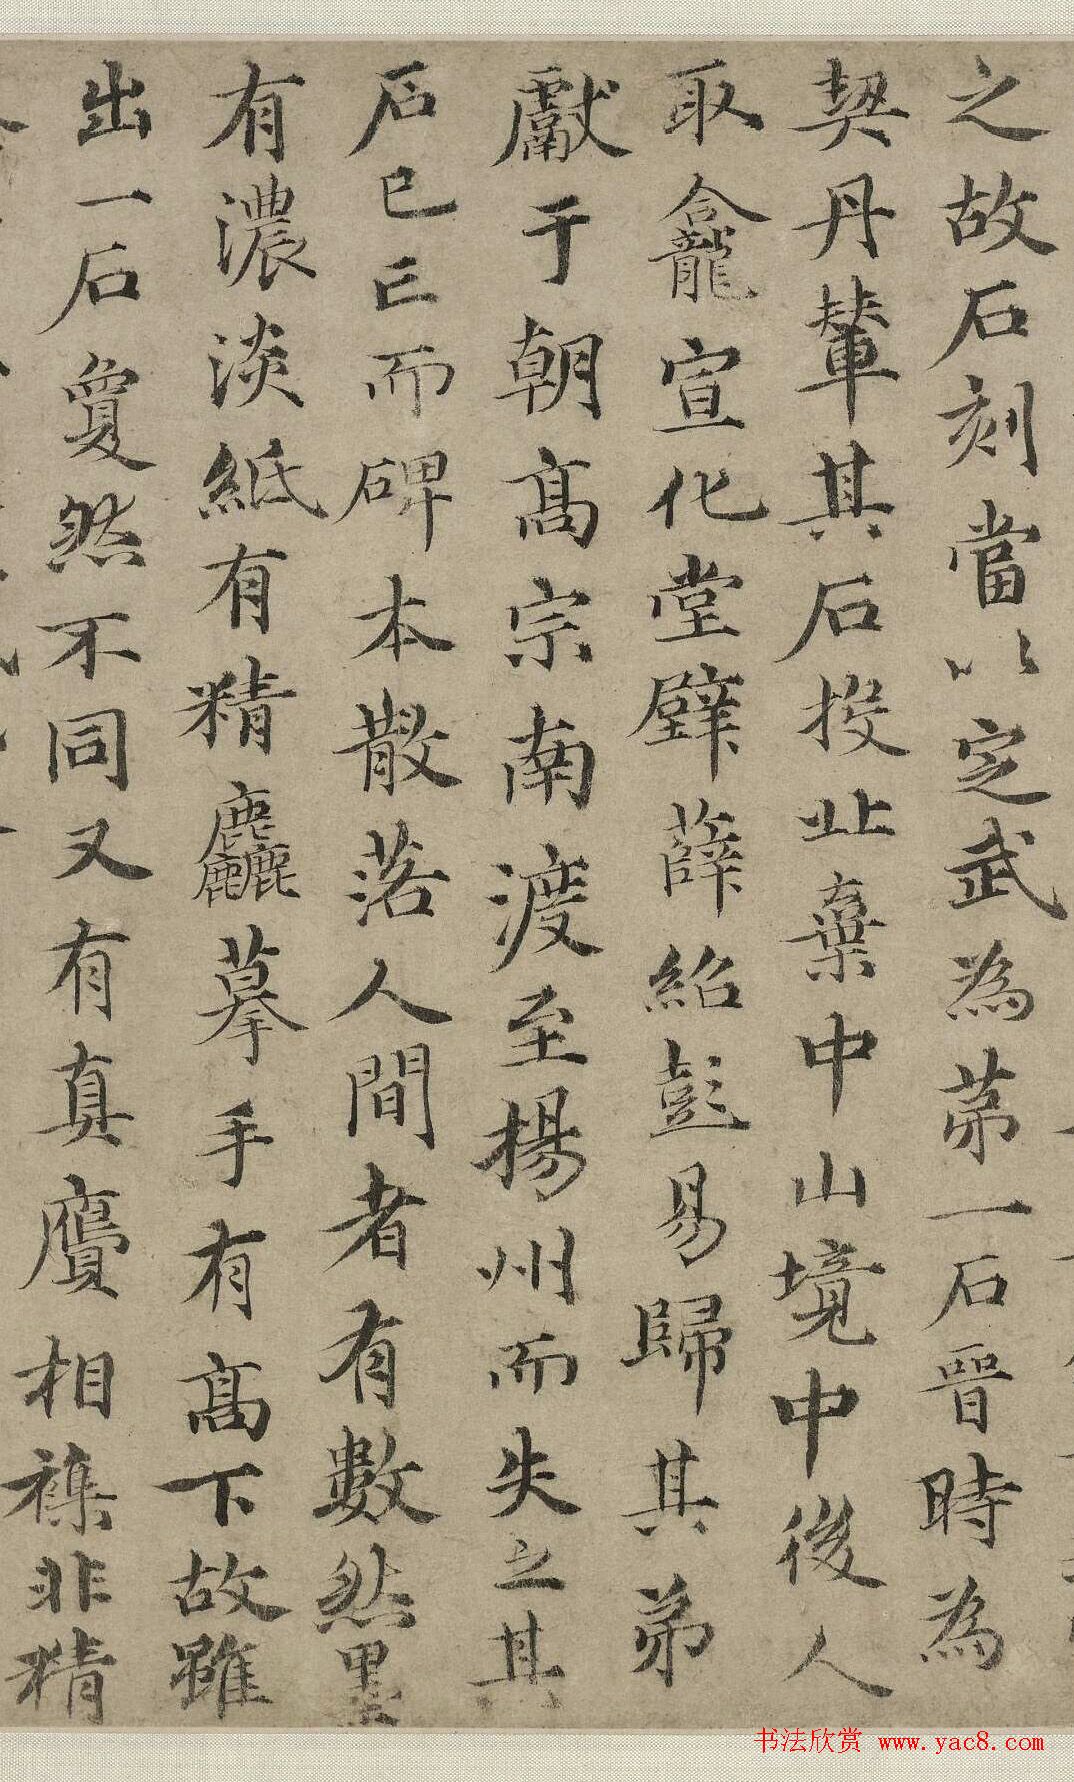 之故石刻當以定武為苐一石晉時為
契丹輦其石投此棄中山境中後人
取龕宣化堂壁薛紹彭易歸其弟
獻于朝髙宗南渡至揚州而失之其
石已亡而碑本散落人間者有數然墨
有濃淡紙有精麤摹手有髙下故雖
出一石敻然不同又有真贗相襍非精
书法欣赏 www.yac8.com